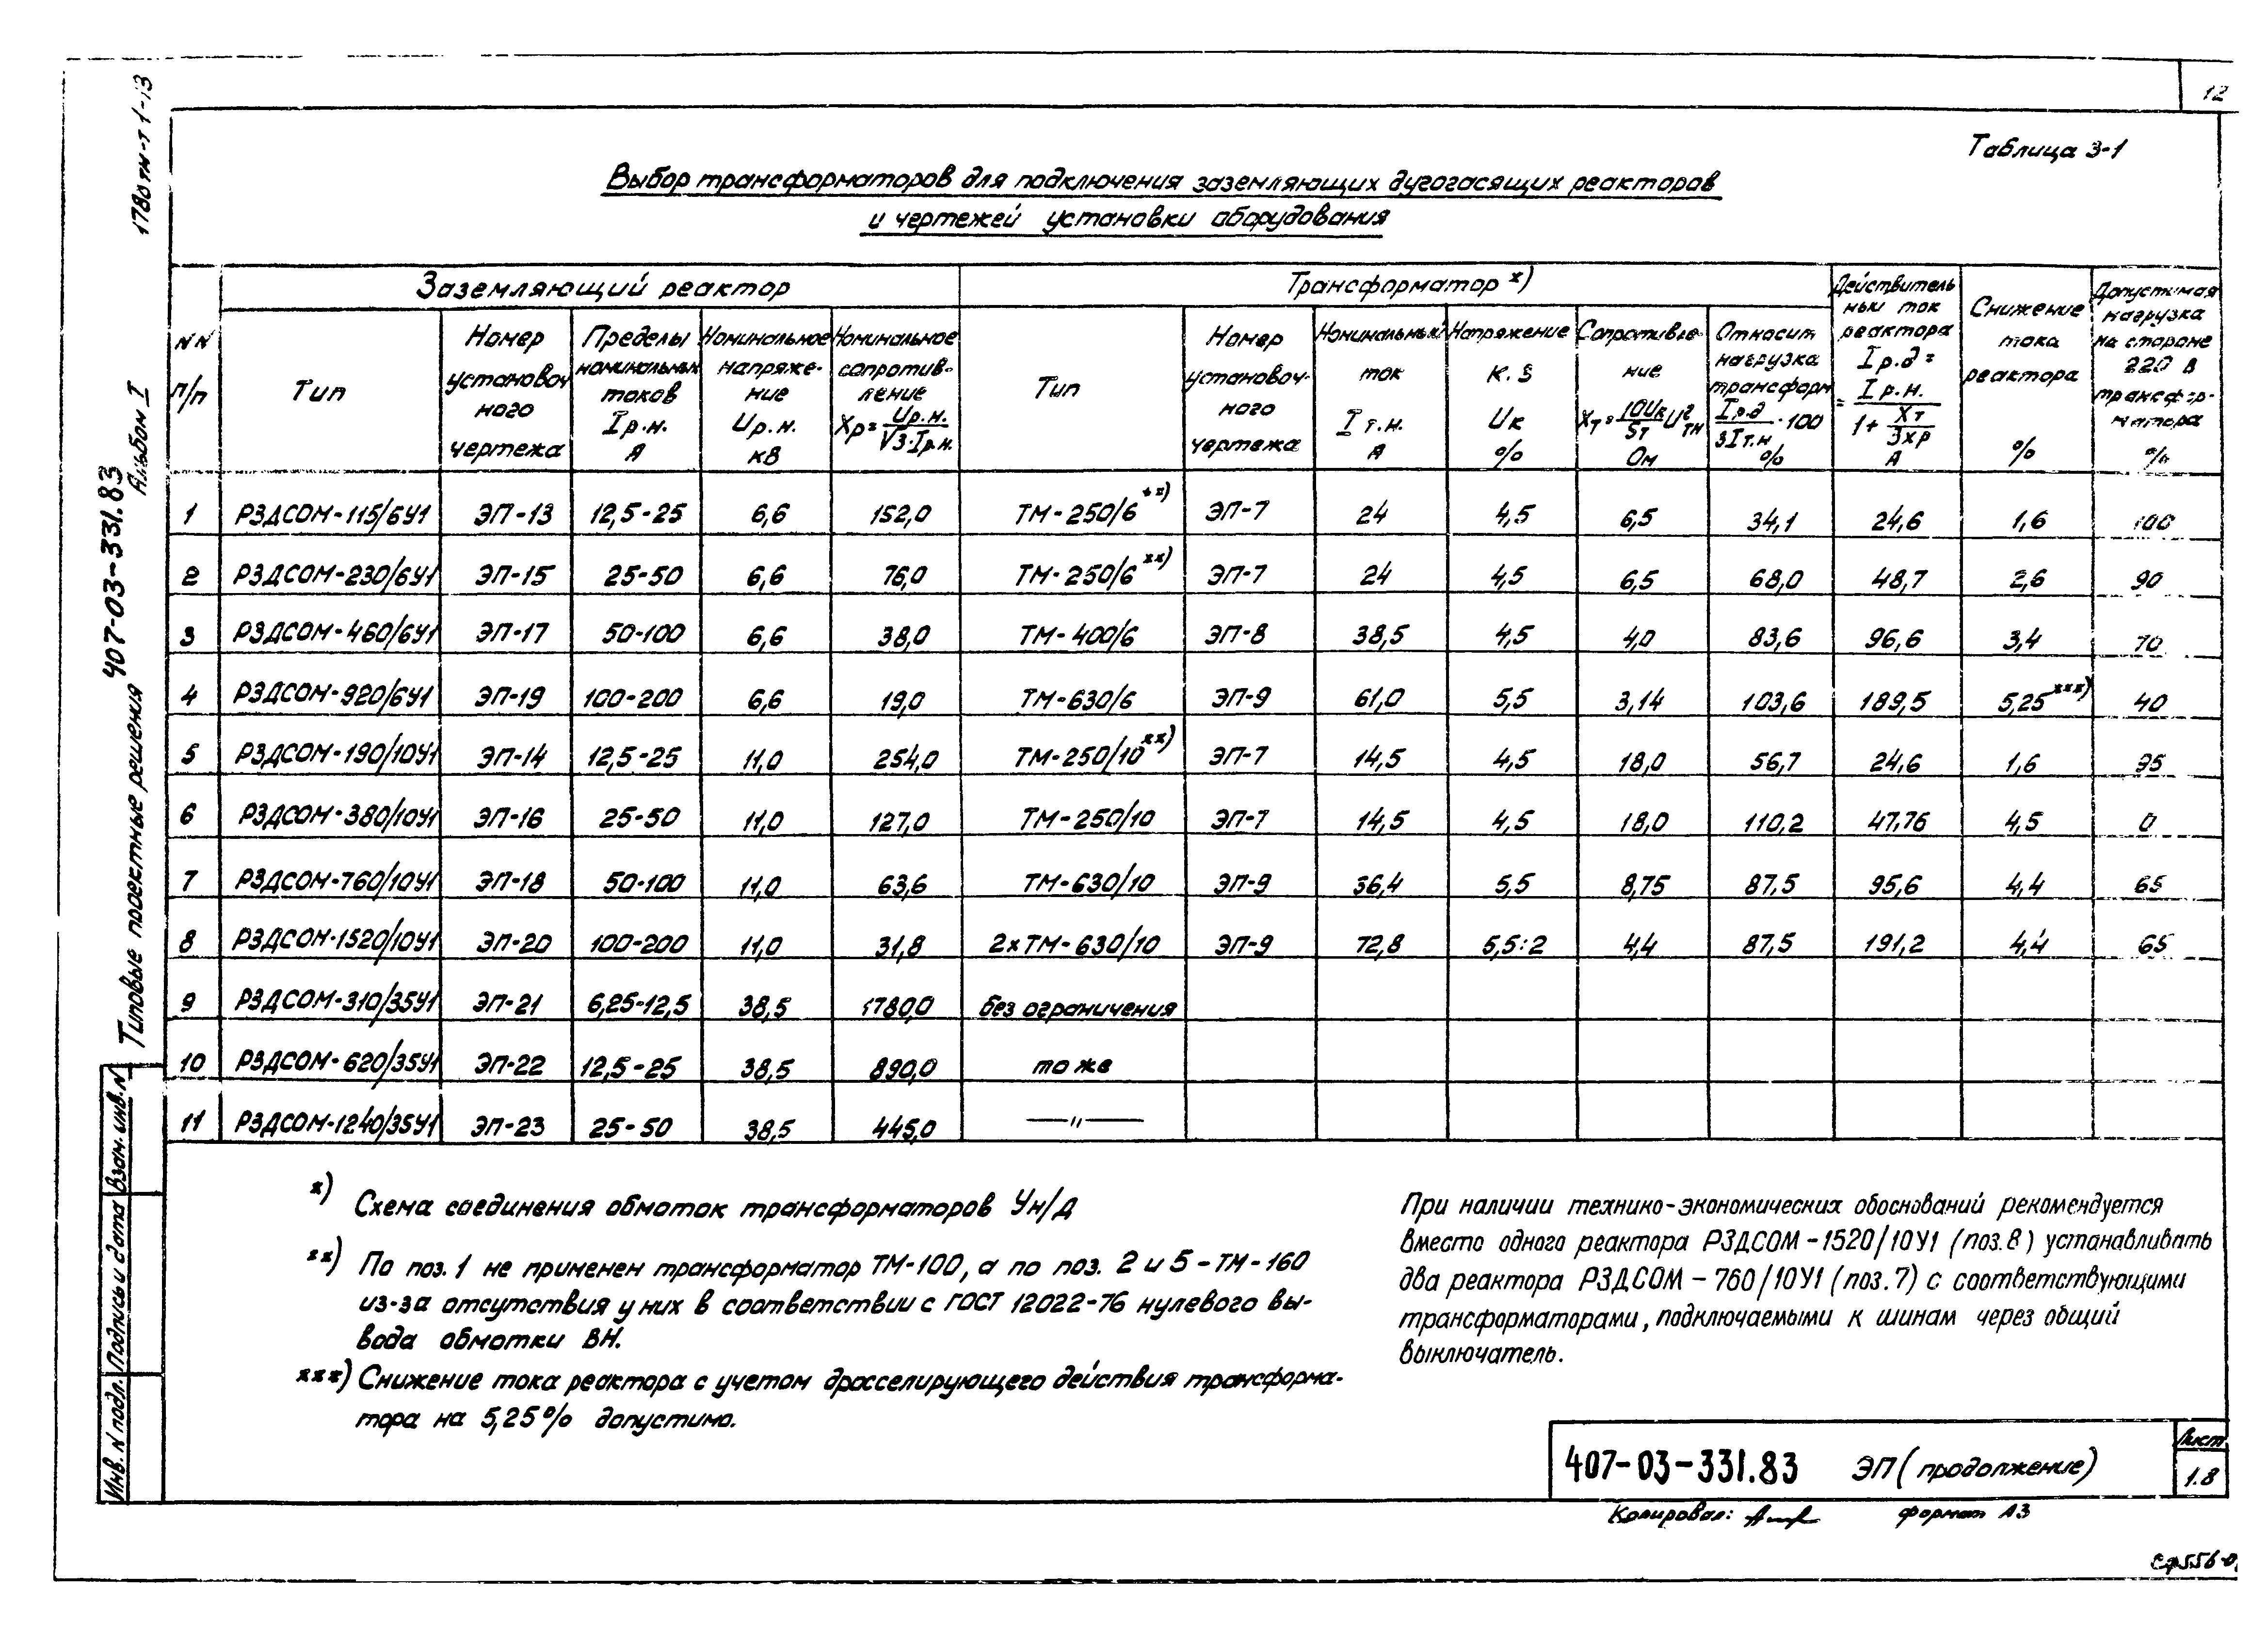 12
Таблица 3-1
Выбор трансформаторов для подключения заземляющих дугогасящих реакторов
и чертежей установки оборудования
NN п/п | Заземляющий реактор | Трансформатор х) | Действитель ный ток реактора Iр.д = = Iр.н. / 1 + Xт/3Xр А | Снижение тока реактора % | Допустимая нагрузка на стороне 220 В трансфор- матора %
Тип | Номер установоч ного чертежа | Пределы номинальных токов Iр.н. А | Номинальное напряже- ние Uр.н. кВ | Номинальное сопротив- ление Xр = Uр.н. / √3·Iр.н. | Тип | Номер установоч- ного чертежа | Номинальный ток Iт.н. А | Напряжение к.з Uк % | Сопротивле- ние Xт = 10Uк/Sт U²тн Ом | Относит нагрузка трансформ Iр.д / 3Iт.н · 100 %
1 | РЗДСОМ-115/6У1 | ЭП-13 | 12,5-25 | 6,6 | 152,0 | ТМ-250/6 хх) | ЭП-7 | 24 | 4,5 | 6,5 | 34,1 | 24,6 | 1,6 | 100
2 | РЗДСОМ-230/6У1 | ЭП-15 | 25-50 | 6,6 | 76,0 | ТМ-250/6 хх) | ЭП-7 | 24 | 4,5 | 6,5 | 68,0 | 48,7 | 2,6 | 90
3 | РЗДСОМ-460/6У1 | ЭП-17 | 50-100 | 6,6 | 38,0 | ТМ-400/6 | ЭП-8 | 38,5 | 4,5 | 4,0 | 83,6 | 96,6 | 3,4 | 70
4 | РЗДСОМ-920/6У1 | ЭП-19 | 100-200 | 6,6 | 19,0 | ТМ-630/6 | ЭП-9 | 61,0 | 5,5 | 3,14 | 103,6 | 189,5 | 5,25 ххх) | 40
5 | РЗДСОМ-190/10У1 | ЭП-14 | 12,5-25 | 11,0 | 254,0 | ТМ-250/10 хх) | ЭП-7 | 14,5 | 4,5 | 18,0 | 56,7 | 24,6 | 1,6 | 95
6 | РЗДСОМ-380/10У1 | ЭП-16 | 25-50 | 11,0 | 127,0 | ТМ-250/10 | ЭП-7 | 14,5 | 4,5 | 18,0 | 110,2 | 47,76 | 4,5 | 0
7 | РЗДСОМ-760/10У1 | ЭП-18 | 50-100 | 11,0 | 63,6 | ТМ-630/10 | ЭП-9 | 36,4 | 5,5 | 8,75 | 87,5 | 95,6 | 4,4 | 65
8 | РЗДСОМ-1520/10У1 | ЭП-20 | 100-200 | 11,0 | 31,8 | 2хТМ-630/10 | ЭП-9 | 72,8 | 5,5:2 | 4,4 | 87,5 | 191,2 | 4,4 | 65
9 | РЗДСОМ-310/35У1 | ЭП-21 | 6,25-12,5 | 38,5 | 1780,0 | без ограничения
10 | РЗДСОМ-620/35У1 | ЭП-22 | 12,5-25 | 38,5 | 890,0 | то же
11 | РЗДСОМ-1240/35У1 | ЭП-23 | 25-50 | 38,5 | 445,0 | —〃—
х) Схема соединения обмоток трансформаторов Ун/Д
хх) По поз. 1 не применен трансформатор ТМ-100, а по поз. 2 и 5 - ТМ-160
из-за отсутствия у них в соответствии с ГОСТ 12022-76 нулевого вы-
вода обмотки ВН.
ххх) Снижение тока реактора с учетом дросселирующего действия трансформа-
тора на 5,25% допустимо.
При наличии технико-экономических обоснований рекомендуется
вместо одного реактора РЗДСОМ-1520/10У1 (поз. 8) устанавливать
два реактора РЗДСОМ-760/10У1 (поз. 7) с соответствующими
трансформаторами, подключаемыми к шинам через общий
выключатель.
407-03-331.83 ЭП (продолжение)
Лист
1.8
Копировал:
формат А3
1780тм-т1-13
Типовые проектные решения 407-03-331.83 Альбом I
Взам. инв. N
Подпись и дата
Инв. N подл.